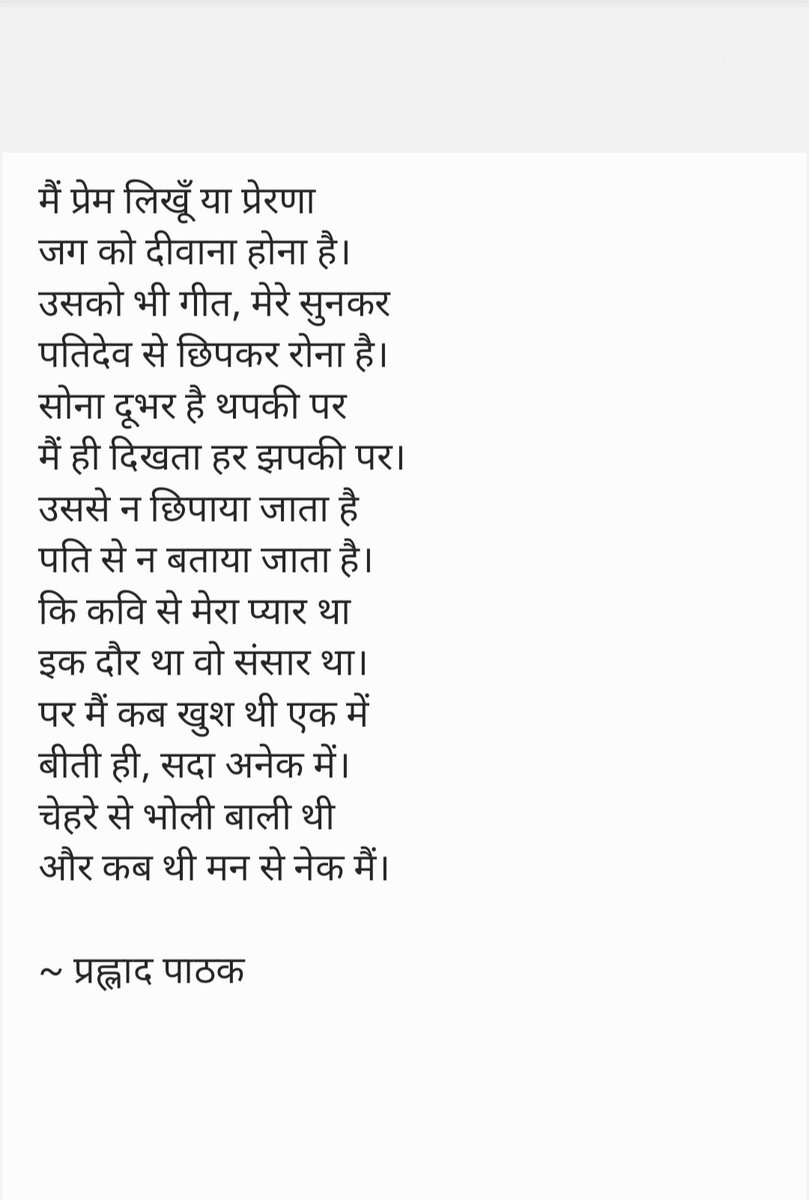 मैं प्रेम लिखूँ या प्रेरणा
जग को दीवाना होना है।
उसको भी गीत, मेरे सुनकर
पतिदेव से छिपकर रोना है।
सोना दूभर है थपकी पर
मैं ही दिखता हर झपकी पर।
उससे न छिपाया जाता है
पति से न बताया जाता है।
कि कवि से मेरा प्यार था
इक दौर था वो संसार था।
पर मैं कब खुश थी एक में
बीती ही, सदा अनेक में।
चेहरे से भोली बाली थी
और कब थी मन से नेक मैं।
~ प्रह्लाद पाठक